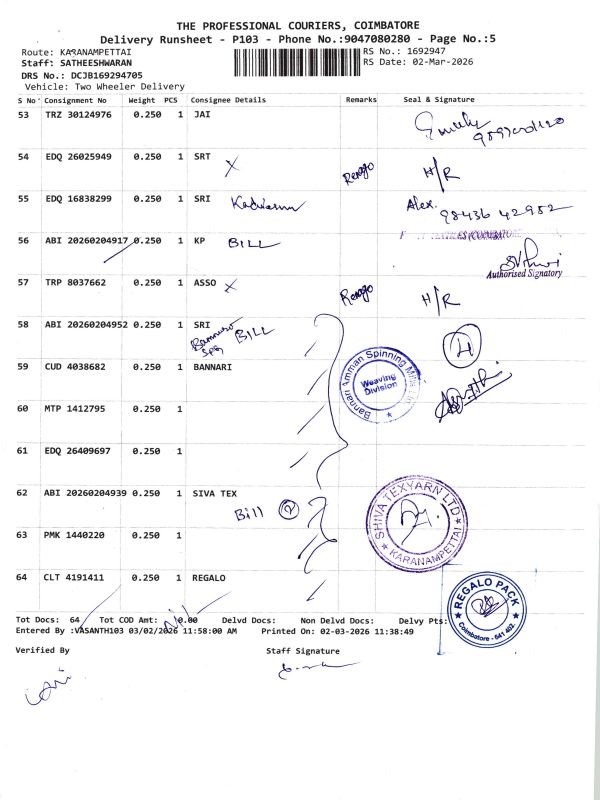 THE PROFESSIONAL COURIERS, COIMBATORE
Delivery Runsheet - P103 - Phone No.:9047080280 - Page No.:5
Route: KARANAMPETTAI
RS No.: 1692947
Staff: SATHEESHWARAN
RS Date: 02-Mar-2026
DRS No.: DCJB169294705
Vehicle: Two Wheeler Delivery
S No Consignment No Weight PCS Consignee Details Remarks Seal & Signature
53 TRZ 30124976 0.250 1 JAI
54 EDQ 26025949 0.250 1 SRT X H/R
55 EDQ 16838299 0.250 1 SRI Alex.
98436 42982
56 ABI 20260204917 0.250 1 KP BILL
Authorised Signatory
57 TRP 8037662 0.250 1 ASSO X H/R
58 ABI 20260204952 0.250 1 SRI BILL
4
59 CUD 4038682 0.250 1 BANNARI
Bannari Amman Spinning Mills
Weaving
Division
60 MTP 1412795 0.250 1
61 EDQ 26409697 0.250 1
62 ABI 20260204939 0.250 1 SIVA TEX
Bill 2
SHIVA TEXYARN LTD
KARANAMPETTAI
63 PMK 1440220 0.250 1
64 CLT 4191411 0.250 1 REGALO
REGALO PACK
Coimbatore - 641 402.
Tot Docs: 64 Tot COD Amt: 0.00 Delvd Docs: Non Delvd Docs: Delvy Pts:
Entered By :VASANTH103 03/02/2026 11:58:00 AM Printed On: 02-03-2026 11:38:49
Verified By Staff Signature